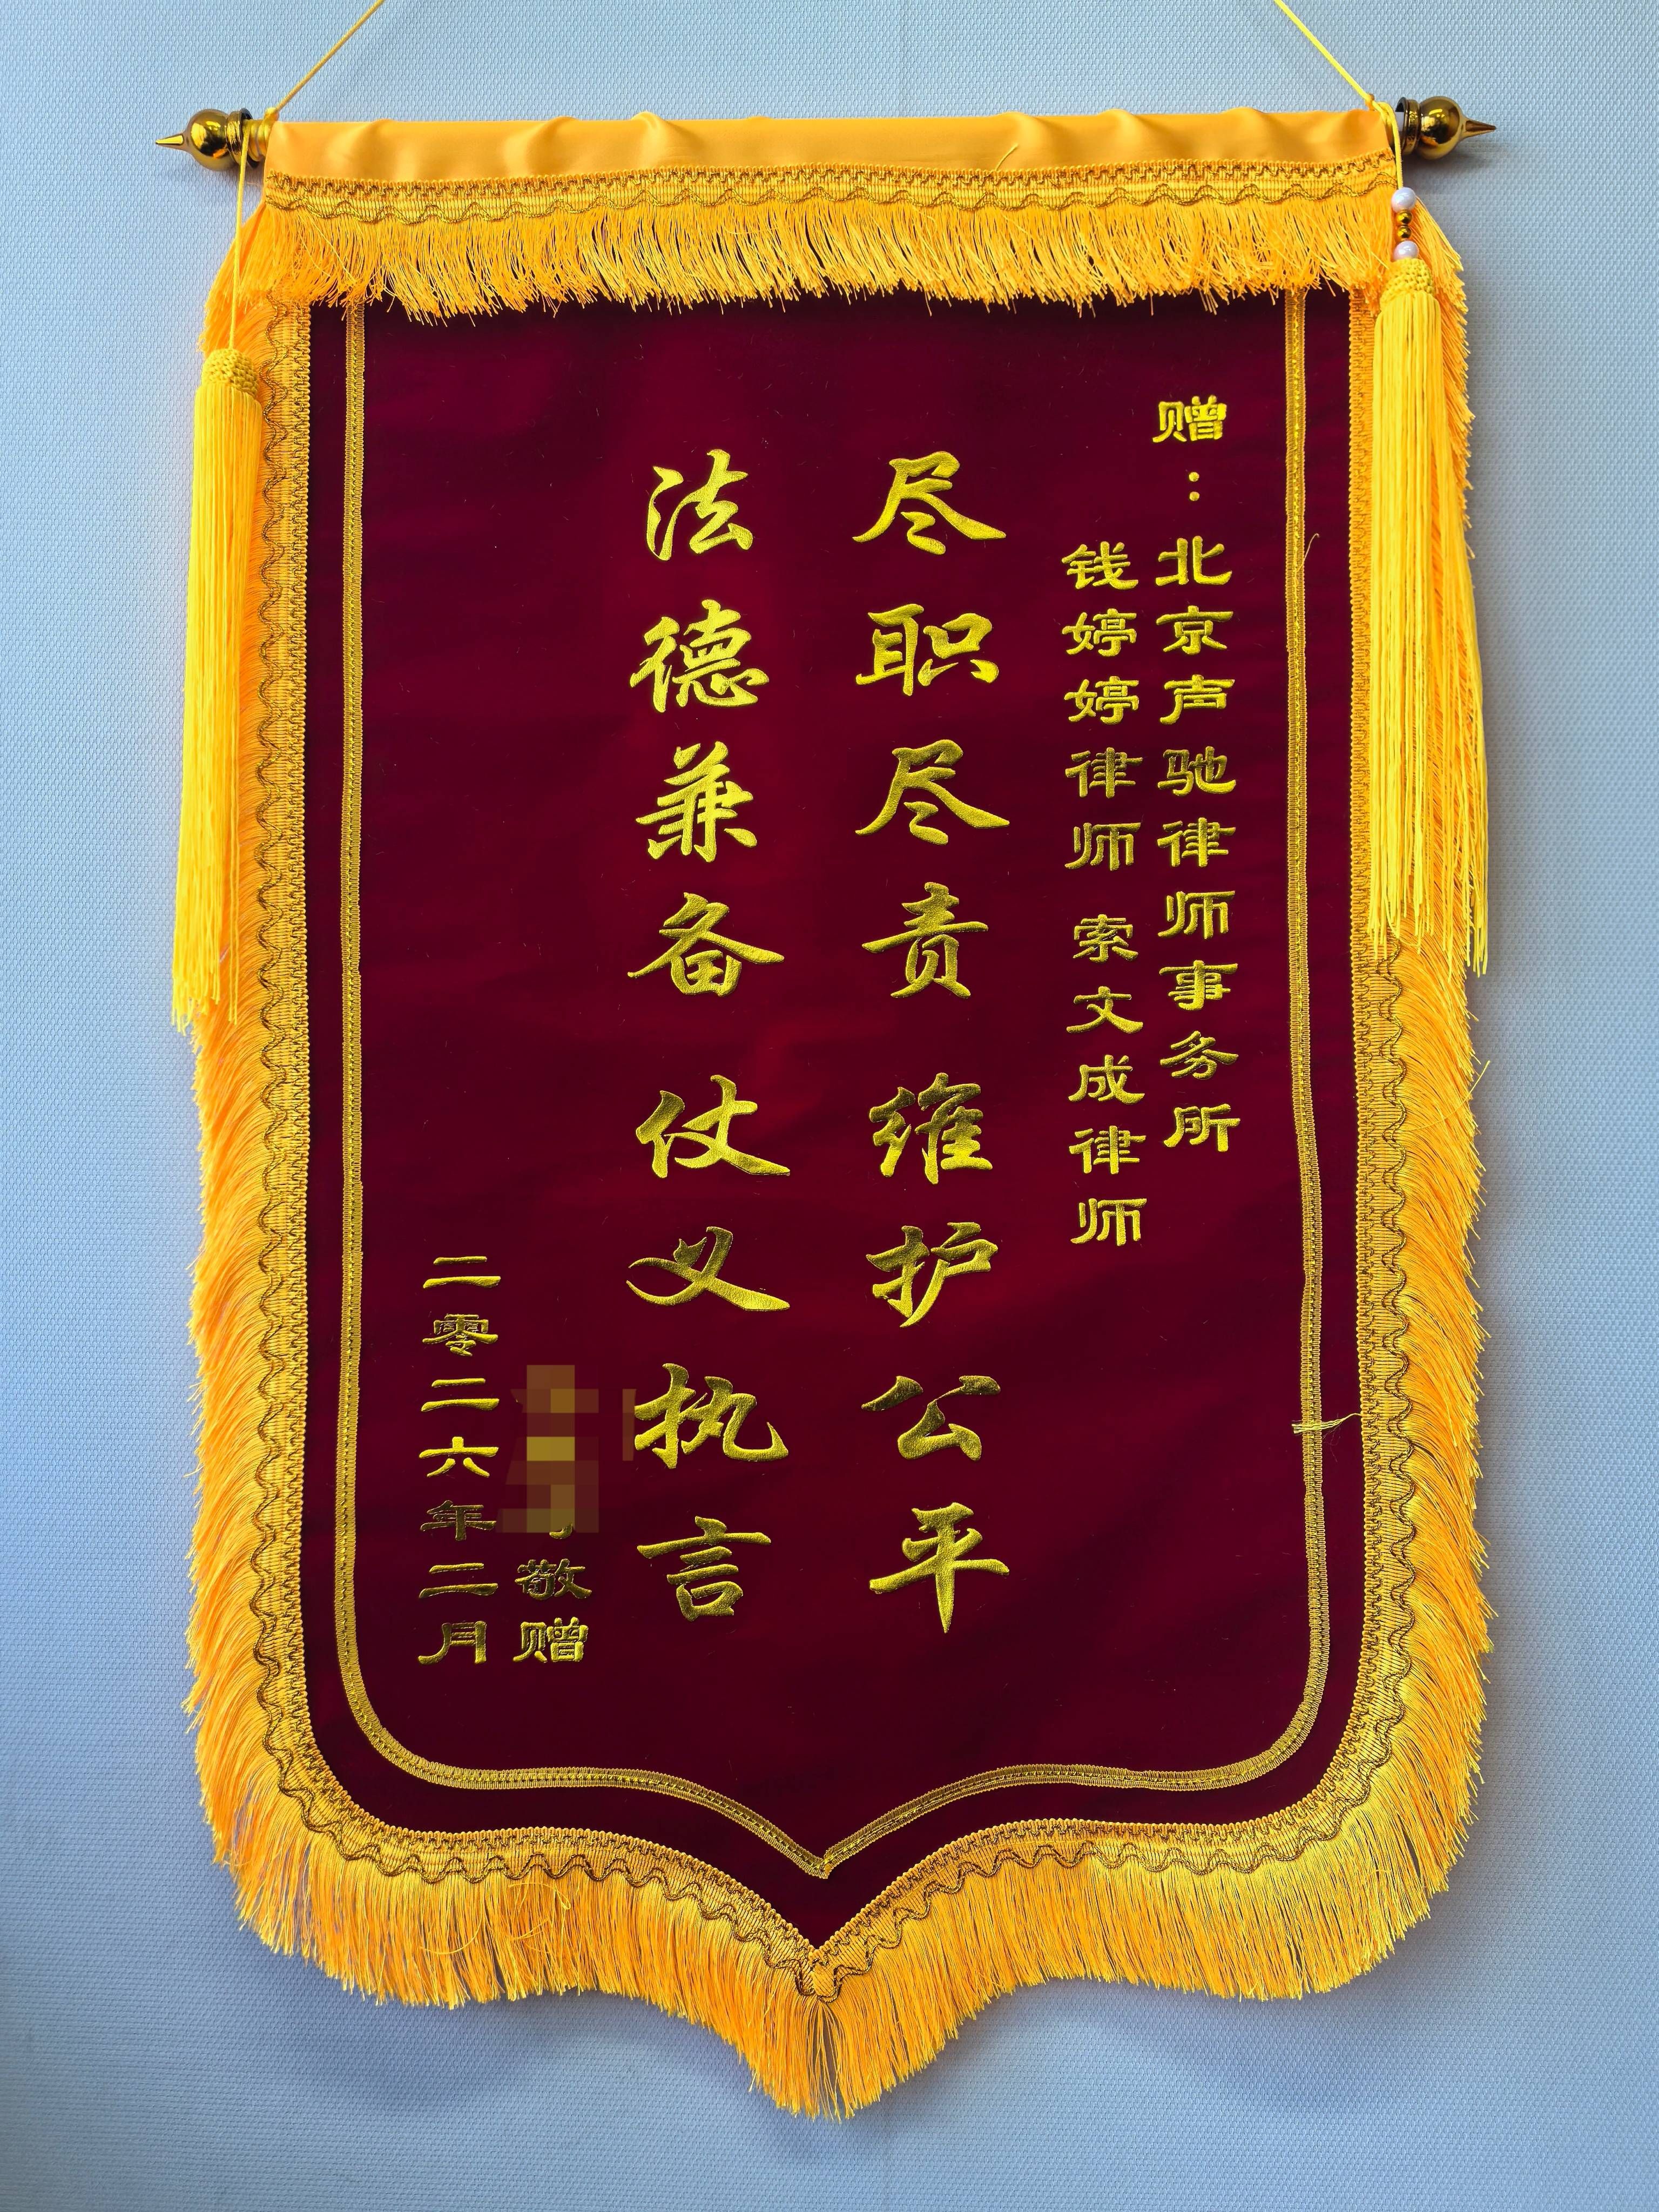 赠：北京声驰律师事务所
钱婷婷律师 索文成律师
尽职尽责 维护公平
法德兼备 仗义执言
敬赠
二零二六年二月